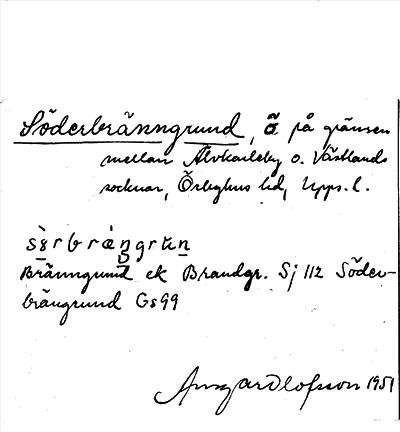 Söderbränngrund, ö på gränsen
mellan Älvkarleby o. Västlands
socknar, Örbyhus hd, Upps. l.
Bränngrund ek Brandgr. Sj 112 Söder-
brängrund Gs 99
Ansgar Olofsson 1951